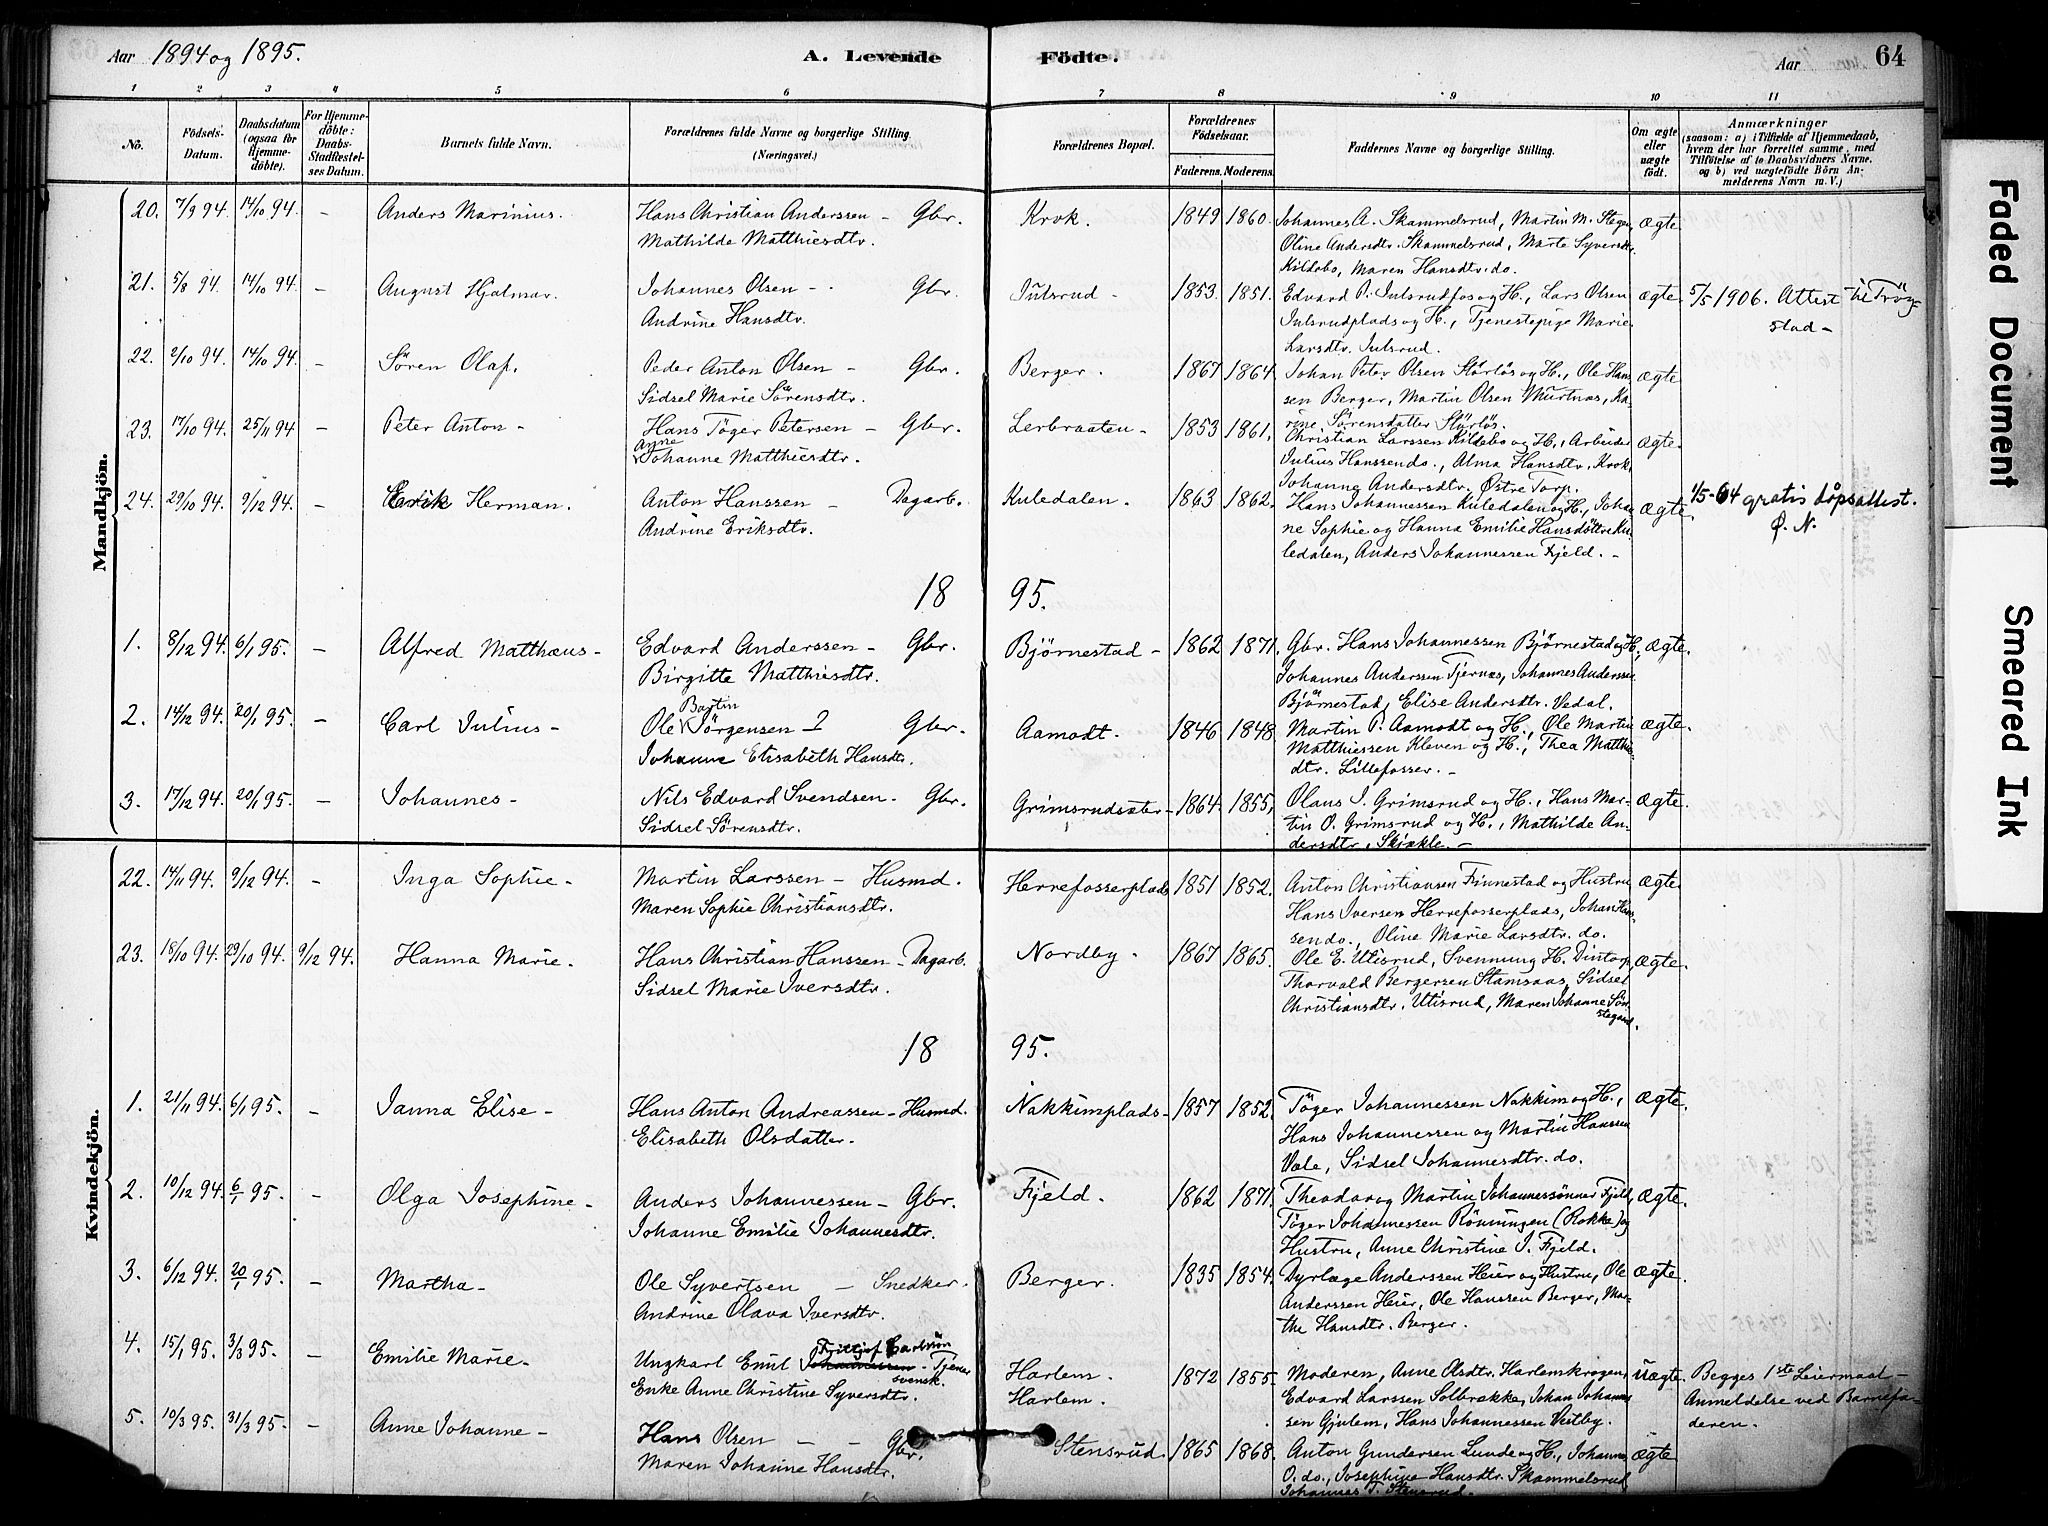 Aar 1894 og 1895. A. Levende Födte. Aar 64
1 2 3 4 5 6 7 8 9 10 11
No. Födsels-Datum. Daabsdatum (ogsaa for Hjemmedöbte). For Hjemmedöbte: Daabs-Stadfæstelses Datum. Barnets fulde Navn. Forældrenes fulde Navne og borgerlige Stilling. (Næringsvei.) Forældrenes Bopæl. Forældrenes Födselsaar. Faderens. Moderens. Faddernes Navne og borgerlige Stilling. Om ægte eller uægte födt. Anmærkninger (saasom: a) i Tilfælde af Hjemmedaab, hvem der har forrettet samme, med Tilföielse af to Daabsvidners Navne, og b) ved uægtefödte Börn Anmelderens Navn m. V.)
Mandkjön.
20. 7/9 94. 14/10 94. – Anders Marinius. Hans Christian Anderssen – Gbr. Krok. 1849 1860. Johannes A. Skammelsrud, Martin M. Stegen, ægte
Mathilde Matthiesdtr. Oline Andersdtr. Skammelsrud, Marte Syversdtr.
Kildebo, Maren Hansdtr. do.
21. 5/8 94. 14/10 94. – August Hjalmar. Johannes Olsen – Gbr. Julsrud – 1853. 1851. Edvard P. Julsrudfos og H., Lars Olsen ægte. 5/5 1906. Attest til Trög-
Andrine Hansdtr. Julsrudplads og H., Tjenestepige Marie stad –
Larsdtr. Julsrud.
22. 2/10 94. 14/10 94. – Sören Olaf. Peder Anton Olsen – Gbr. Berger. 1867 1864. Johan Peter Olsen Störlös og H., Ole Hans- ægte
Sidsel Marie Sörensdtr. sen Berger, Martin Olsen Murtnas, Ka-
rine Sörensdatter Störlös.
23. 17/10 94. 25/11 94 – Peter Anton – Hans Töger Petersen – Gbr. Lerbraaten – 1853 1861. Christian Larssen Kildebo og H., Arbeider ægte.
Anne Johanne Matthiesdtr. Julius Hanssen do., Alma Hansdtr. Krok,
Johanne Andersdtr. Østre Torp.
24. 29/10 94. 9/12 94. – Erik Herman. Anton Hanssen – Dagarb. Kuledalen. 1863 1862. Hans Johannessen Kuledalen og H., Johan- ægte. 1/5-64 gratis dåpsattest.
Andrine Eriksdtr. ne Sophie og Hanna Emilie Hansdöttre Ku- Ø. N.
ledalen, Anders Johannessen Fjeld. –
18 95.
1. 8/12 94. 6/1 95. – Alfred Matthæus – Edvard Anderssen – Gbr. Bjørnestad – 1862 1871. Gbr. Hans Johannessen Bjørnestad og H., ægte.
Birgitte Matthiesdtr. Johannes Anderssen Tjernæs, Johannes Anderssen
Bjørnestad, Elise Andersdtr. Vedal.
2. 14/12 94. 20/1 95. – Carl Julius – Ole Bartin Jörgensen – Gbr. Aamodt. 1846 1848 Martin P. Aamodt og H., Ole Martin ægte.
Johanne Elisabeth Hansdtr. Matthiessen Kleven og H., Thea Matthis-
dtr. Lillefosser. –
3. 17/12 94. 20/1 95. – Johannes – Nils Edvard Svendsen – Gbr. Grimsrudsæter – 1864. 1855. Olaus J. Grimsrud og H., Hans Mar- ægte.
Sidsel Sörensdtr. tin O. Grimsrud og H., Mathilde An-
dersdtr. Skiækle. –
Kvindekjön.
22. 14/11 94. 9/12 94. – Inga Sophie – Martin Larssen – Husmd. Herrefosserplads 1851 1852. Anton Christiansen Finnestad og Hustru, ægte
Maren Sophie Christiansdtr. Hans Iversen Herrefosserplads, Johan Hans-
sen do., Oline Marie Larsdtr. do.
23. 18/10 94. 29/10 94. 9/12 94. Hanna Marie. Hans Christian Hanssen – Dagarb. Nordby. 1867 1865. Ole E. Utisrud, Svennung H. Dintorp, ægte.
Sidsel Marie Iversdtr. Thorvald Bergersen Stamsaas, Sidsel
Christiansdtr. Utisrud, Maren Johanne Sör-
stegard.
18 95.
1. 21/11 94. 6/1 95. – Janna Elise – Hans Anton Andreassen – Husmd. Nakkimplads – 1857 1852. Töger Johannessen Nakkim og H., ægte.
Elisabeth Olsdatter. Hans Johannessen og Martin Hanssen
Vale, Sidsel Johannesdtr. do.
2. 10/12 94. 6/1 95. – Olga Josephine – Anders Johannessen – Gbr. Fjeld. 1862 1871. Theodor og Martin Johannessönner Fjeld, ægte.
Johanne Emilie Johannesdtr. Töger Johannessen Rönningen (Rokke) og
Hustru, Anne Christine J. Fjeld.
3. 6/12 94. 20/1 95. – Martha – Ole Syvertsen – Snedker. Berger. 1835 1854. Dyrlæge Anderssen Heier og Hustru, Ole ægte.
Andrine Olava Iversdtr. Anderssen Heier, Ole Hanssen Berger, Mar-
the Hansdtr. Berger.
4. 15/1 95. 3/3 95. – Emilie Marie – Ungkarl Emil Johannessen – Tjener svensk. Harlem. 1872 1855. Moderen, Anne Olsdtr. Harlemskrogen, uægte. Begges 1ste Leiermaal –
Enke Anne Christine Syversdtr. Harlem. Edvard Larssen Solbrække, Johan Johannes- Anmeldelse ved Barnefa-
sen Gjulem, Hans Johannessen Vestby. deren.
5. 10/3 95. 31/3 95. – Anne Johanne – Hans Olsen – – Gbr. Stensrud. 1865 1868. Anton Gundersen Lunde og H., Johannes ægte
Maren Johanne Hansdtr. O. do., Josephine Hansdtr. Skammelsrud,
Johannes T. Stensrud.
Faded Document
Smeared Ink